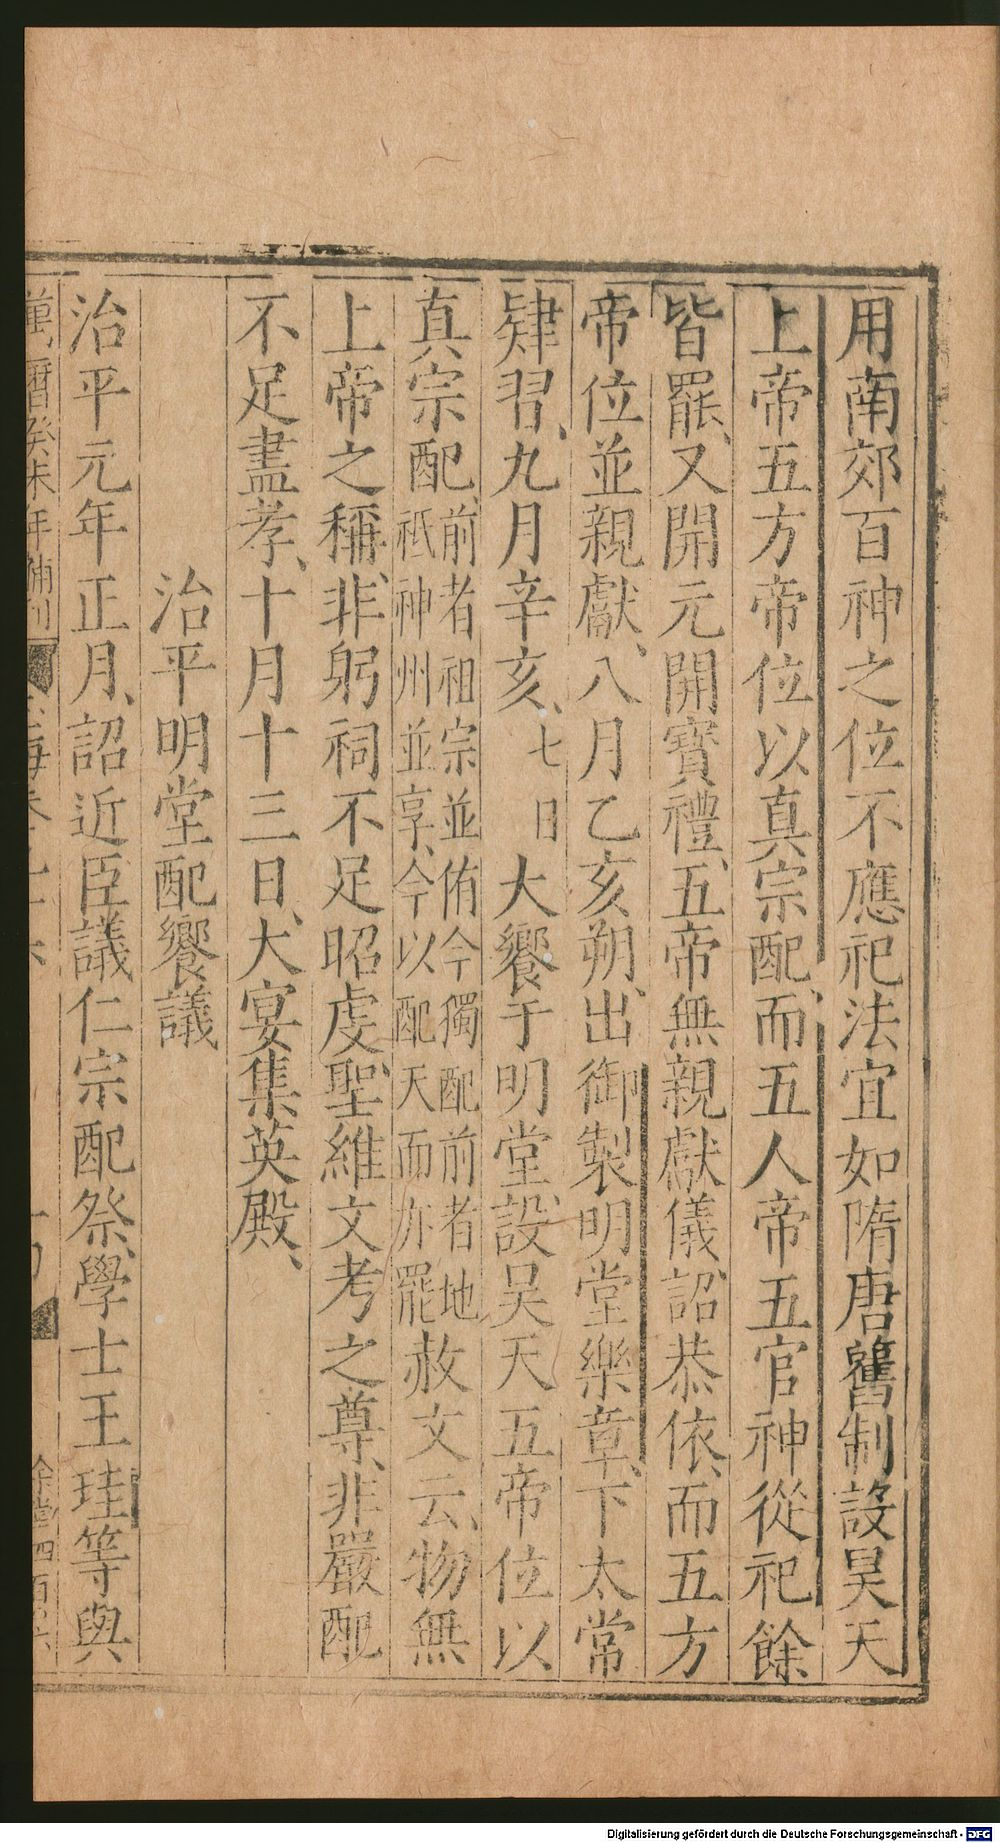 用南郊百神之位不應祀法宜如隋唐舊制設昊天
上帝五方帝位以真宗配而五人帝五官神從祀餘
皆罷又開元開寶禮五帝無親獻儀詔恭依而五方
帝位並親獻八月乙亥朔出御製明堂樂章下太常
肄習九月辛亥七日大饗于明堂設昊天五帝位以
真宗配前者祖宗並侑今獨配前者地祇神州並享今以配天而亦罷赦文云物無
上帝之稱非躬祠不足昭虔聖維文考之尊非嚴配
不足盡孝十月十三日大宴集英殿
治平明堂配饗議
治平元年正月詔近臣議仁宗配祭學士王珪等與
萬曆癸未年補刊
Digitalisierung gefördert durch die Deutsche Forschungsgemeinschaft - DFG